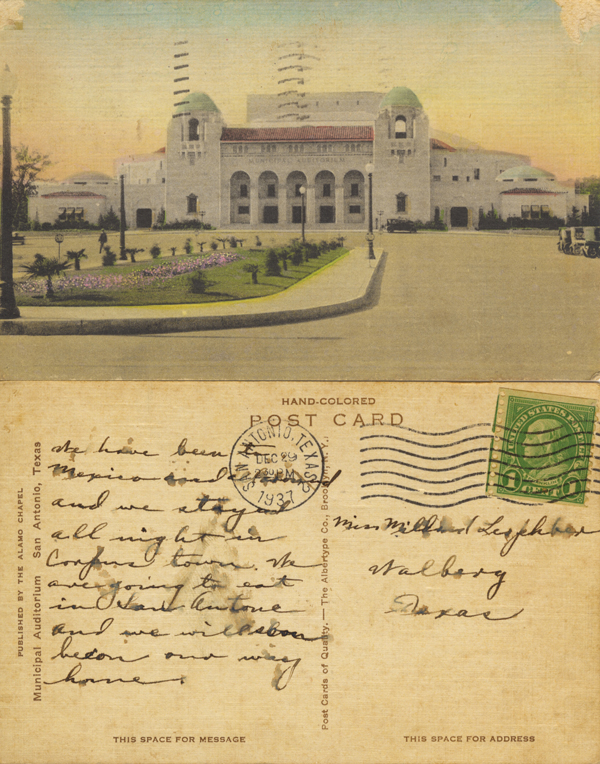 MUNICIPAL AUDITORIUM
HAND-COLORED
POST CARD
PUBLISHED BY THE ALAMO CHAPEL
Municipal Auditorium San Antonio, Texas
We have been
Mexico and
and we stayed
all night in
Corpus town. We
are going to eat
in San Antone
and we will soon
be on our way
home.
SAN ANTONIO, TEXAS
DEC 29
PM
1937
UNITED STATES POSTAGE
1 CENT 1
Post Cards of Quality. — The Albertype Co., Brooklyn, N.Y.
Miss Mildred
Walberg
Texas
THIS SPACE FOR MESSAGE
THIS SPACE FOR ADDRESS